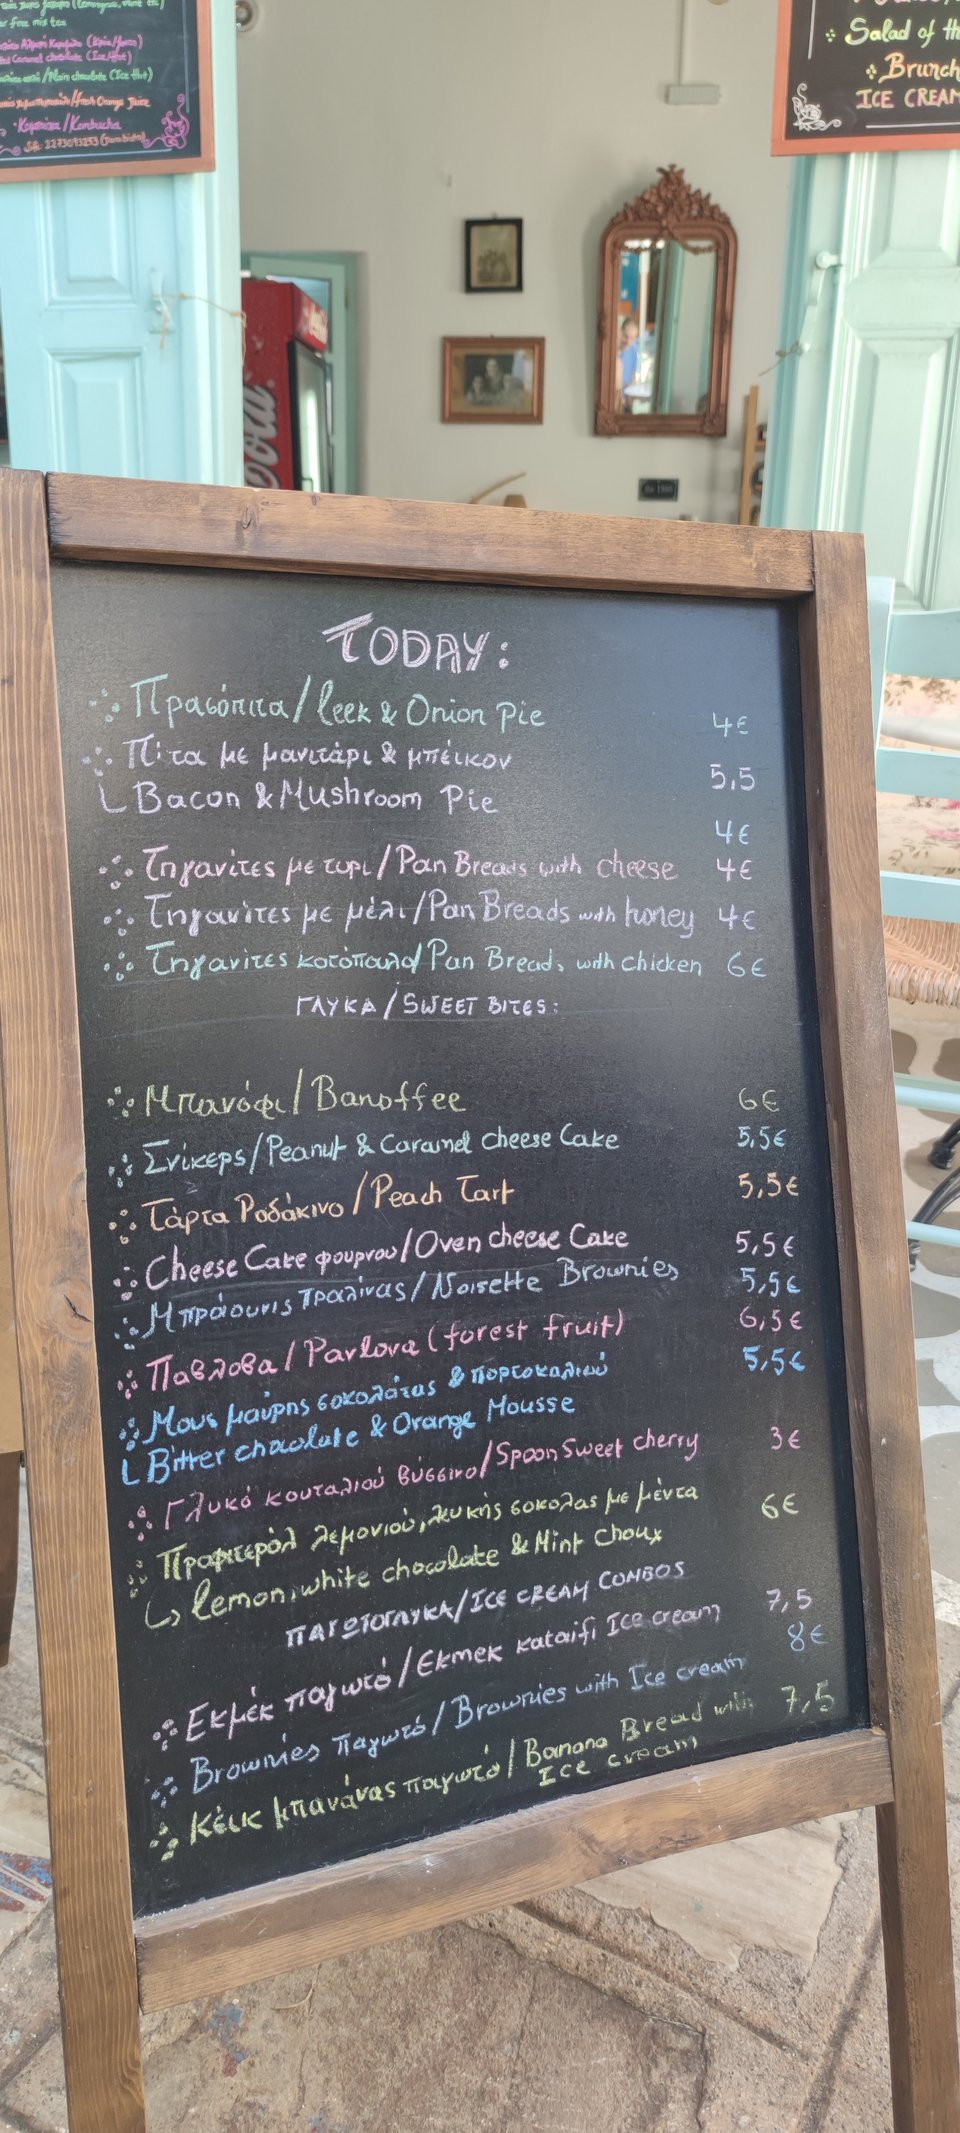 (lemongrass, mint tea)
free mix tea
(Ice/Hot)
Caramel chocolate (Ice/Hot)
/Plain chocolate (Ice Hot)
/Fresh Orange Juice
/Kombucha
Salad of th
Brunch
ICE CREAM
TODAY:
Πρασόπιτα/leek & Onion Pie 4€
Πίτα με μανιτάρι & μπέικον
Bacon & Mushroom Pie 5,5
4€
Τηγανίτες με τυρι/Pan Breads with cheese 4€
Τηγανίτες με μέλι/Pan Breads with honey 4€
Τηγανίτες κοτόπουλο/Pan Breads with chicken 6€
ΓΛΥΚΑ/SWEET BITES:
Μπανόφι/Banoffee 6€
Σνίκερς/Peanut & Caramel cheese Cake 5,5€
Τάρτα Ροδάκινο/Peach Tart 5,5€
Cheese Cake φουρνου/Oven cheese Cake 5,5€
Μπράουνις πραλίνας/Noisette Brownies 5,5€
Παβλοβα/Pavlova (forest fruit) 6,5€
Μους μαύρης σοκολάτας & πορτοκαλιού 5,5€
Bitter chocolate & Orange Mousse
Γλυκό κουταλιού βύσσινο/Spoon Sweet cherry 3€
Πραφιτερόλ λεμονιού, λευκής σοκολας με μέντα 6€
lemon, white chocolate & Mint choux
ΠΑΓΩΤΟΓΛΥΚΑ/ICE CREAM COMBOS
Εκμέκ παγωτό/Ekmek kataifi Ice cream 7,5
Brownies παγωτό/Brownies with Ice cream 8€
Κέικ μπανάνας παγωτό/Banana Bread with 7,5
Ice cream